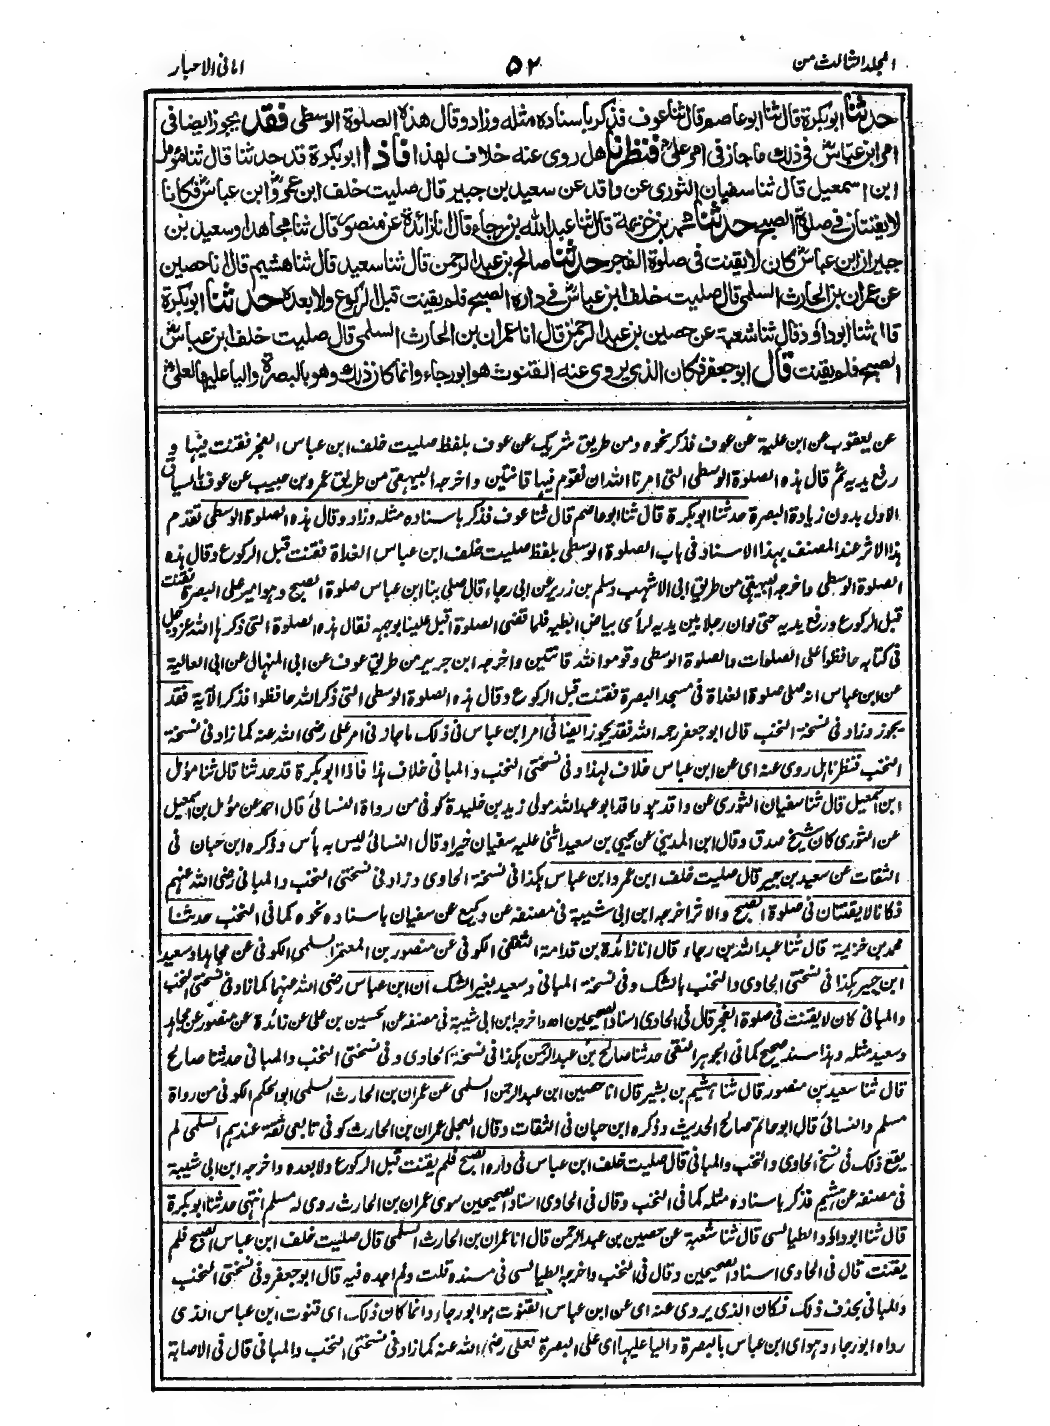 المجلد الثالث من
٥٢
امانى الاحبار
حدثنا ابوبكرة قال ثنا ابوعاصم قال ثنا عوف فذكر باسناده مثله وزاد وقال هذه الصلوة الوسطى فقد يجوز ايضا فى
امر ابن عباسؓ فى ذلك ما جاز فى امر علىؓ فنظرنا هل روى عنه خلاف لهذا فاذا ابوبكرة قد حدثنا قال ثنا مؤمل
ابن اسمعيل قال ثنا سفيان الثورى عن واقد عن سعيد بن جبير قال صليت خلف ابن عمرؓ وابن عباسؓ فكانا
لا يقنتان فى صلوة الصبح حدثنا محمد بن خزيمة قال ثنا عبدالله بن رجاء قال انا زائدة عن منصور قال ثنا مجاهد او سعيد بن
جبير ان ابن عباسؓ كان لا يقنت فى صلوة الفجر حدثنا صالح بن عبدالرحمن قال ثنا سعيد قال ثنا هشيم قال انا حصين
عن عمران بن الحارث السلمى قال صليت خلف ابن عباسؓ فى داره الصبح فلم يقنت قبل الركوع ولا بعده حدثنا ابوبكرة
قال ثنا ابوداؤد قال ثنا شعبة عن حصين بن عبدالرحمن قال انا عمران بن الحارث السلمى قال صليت خلف ابن عباسؓ
الصبح فلم يقنت قال ابوجعفر فكان الذى يروى عنه القنوت هو ابورجاء وانما كان ذلك وهو بالبصرة واليا عليها لعلىؓ
عن يعقوب عن ابن علية عن عوف فذكر نحوه ومن طريق شريك عن عوف بلفظ صليت خلف ابن عباس الفجر فقنت فيها و
رفع يديه ثم قال هذه الصلوة الوسطى التى امرنا الله ان نقوم فيها قانتين واخرجه البيهقى من طريق عمرو بن حبيب عن عوف بالسياق
الاول بدون زيادة البصرة حدثنا ابوبكرة قال ثنا ابوعاصم قال ثنا عوف فذكر باسناده مثله وزاد وقال هذه الصلوة الوسطى تقدم
هذا الاثر عند المصنف بهذا الاسناد فى باب الصلوة الوسطى بلفظ صليت خلف ابن عباس الغداة فقنت قبل الركوع وقال هذه
الصلوة الوسطى واخرجه البيهقى من طريق ابى الاشهب وسلم بن زرير عن ابى رجاء قال صلى بنا ابن عباس صلوة الصبح وهو امير على البصرة فقنت
قبل الركوع ورفع يديه حتى لوان رجلا بين يديه لرأى بياض ابطيه فلما قضى الصلوة اقبل علينا بوجهه فقال هذه الصلوة التى ذكرها الله عزوجل
فى كتابه حافظوا على الصلوات والصلوة الوسطى وقوموا لله قانتين واخرجه ابن جرير من طريق عوف عن ابى المنهال عن ابى العالية
عن ابن عباس انه صلى صلوة الغداة فى مسجد البصرة فقنت قبل الركوع وقال هذه الصلوة الوسطى التى ذكر الله حافظوا فذكر الآية فقد
يجوز وزاد فى نسخة النخب قال ابوجعفر رحمه الله فقد يجوز ايضا فى امر ابن عباس فى ذلك ماجاز فى امر على رضى الله عنه كما زاد فى نسخة
النخب فنظرنا هل روى عنه اى عن ابن عباس خلاف لهذا وفى نسختى النخب والمبانى خلاف هذا فاذا ابوبكرة قد حدثنا قال ثنا مؤمل
ابن اسمعيل قال ثنا سفيان الثورى عن واقد هو واقد ابوعبدالله مولى زيد بن خليدة كوفى من رواة النسائى قال احمد عن مؤمل بن اسمعيل
عن الثورى كان شيخ صدق وقال ابن المدينى عن يحيى بن سعيد اثنى عليه سفيان خيرا وقال النسائى ليس به بأس وذكره ابن حبان فى
الثقات عن سعيد بن جبير قال صليت خلف ابن عمر وابن عباس هكذا فى نسخة الحاوى وزاد فى نسختى النخب والمبانى رضى الله عنهم
فكانا لا يقنتان فى صلوة الصبح والاثر اخرجه ابن ابى شيبة فى مصنفه عن وكيع عن سفيان باسناده نحوه كما فى النخب حدثنا
محمد بن خزيمة قال ثنا عبدالله بن رجاء قال انا زائدة بن قدامة الثقفى الكوفى عن منصور بن المعتمر السلمى الكوفى عن مجاهد او سعيد
ابن جبير هكذا فى نسختى الحاوى والنخب بالشك وفى نسخة المبانى وسعيد بغير الشك ان ابن عباس رضى الله عنهما كما زاد فى نسختى النخب
والمبانى كان لا يقنت فى صلوة الفجر قال فى الحاوى اسناد الصحيحين اه واخرجه ابن ابى شيبة فى مصنفه عن الحسين بن على عن زائدة عن منصور عن مجاهد
وسعيد مثله وهذا سند صحيح كما فى الجوهر النقى حدثنا صالح بن عبدالرحمن هكذا فى نسخة الحاوى وفى نسختى النخب والمبانى حدثنا صالح
قال ثنا سعيد بن منصور قال ثنا هشيم بن بشير قال انا حصين ابن عبدالرحمن السلمى عن عمران بن الحارث السلمى ابوالحكم الكوفى من رواة
مسلم والنسائى قال ابوحاتم صالح الحديث وذكره ابن حبان فى الثقات وقال العجلى عمران بن الحارث كوفى تابعى ثقة عندهم السلمى لم
يقع ذلك فى نسخ الحاوى والنخب والمبانى قال صليت خلف ابن عباس فى داره الصبح فلم يقنت قبل الركوع ولا بعده واخرجه ابن ابى شيبة
فى مصنفه عن هشيم فذكر باسناده مثله كما فى النخب وقال فى الحاوى اسناد الصحيحين سوى عمران بن الحارث روى له مسلم انتهى حدثنا ابوبكرة
قال ثنا ابوداؤد الطيالسى قال ثنا شعبة عن حصين بن عبدالرحمن قال انا عمران بن الحارث السلمى قال صليت خلف ابن عباس الصبح فلم
يقنت قال فى الحاوى اسناد الصحيحين وقال فى النخب واخرجه الطيالسى فى مسنده قلت ولم اجده فيه قال ابوجعفر وفى نسختى النخب
والمبانى بحذف ذلك فكان الذى يروى عنه اى عن ابن عباس القنوت هو ابورجاء وانما كان ذلك اى قنوت ابن عباس الذى
رواه ابورجاء وهو اى ابن عباس بالبصرة واليا عليها اى على البصرة لعلى رضى الله عنه كما زاد فى نسختى النخب والمبانى قال فى الاصابة